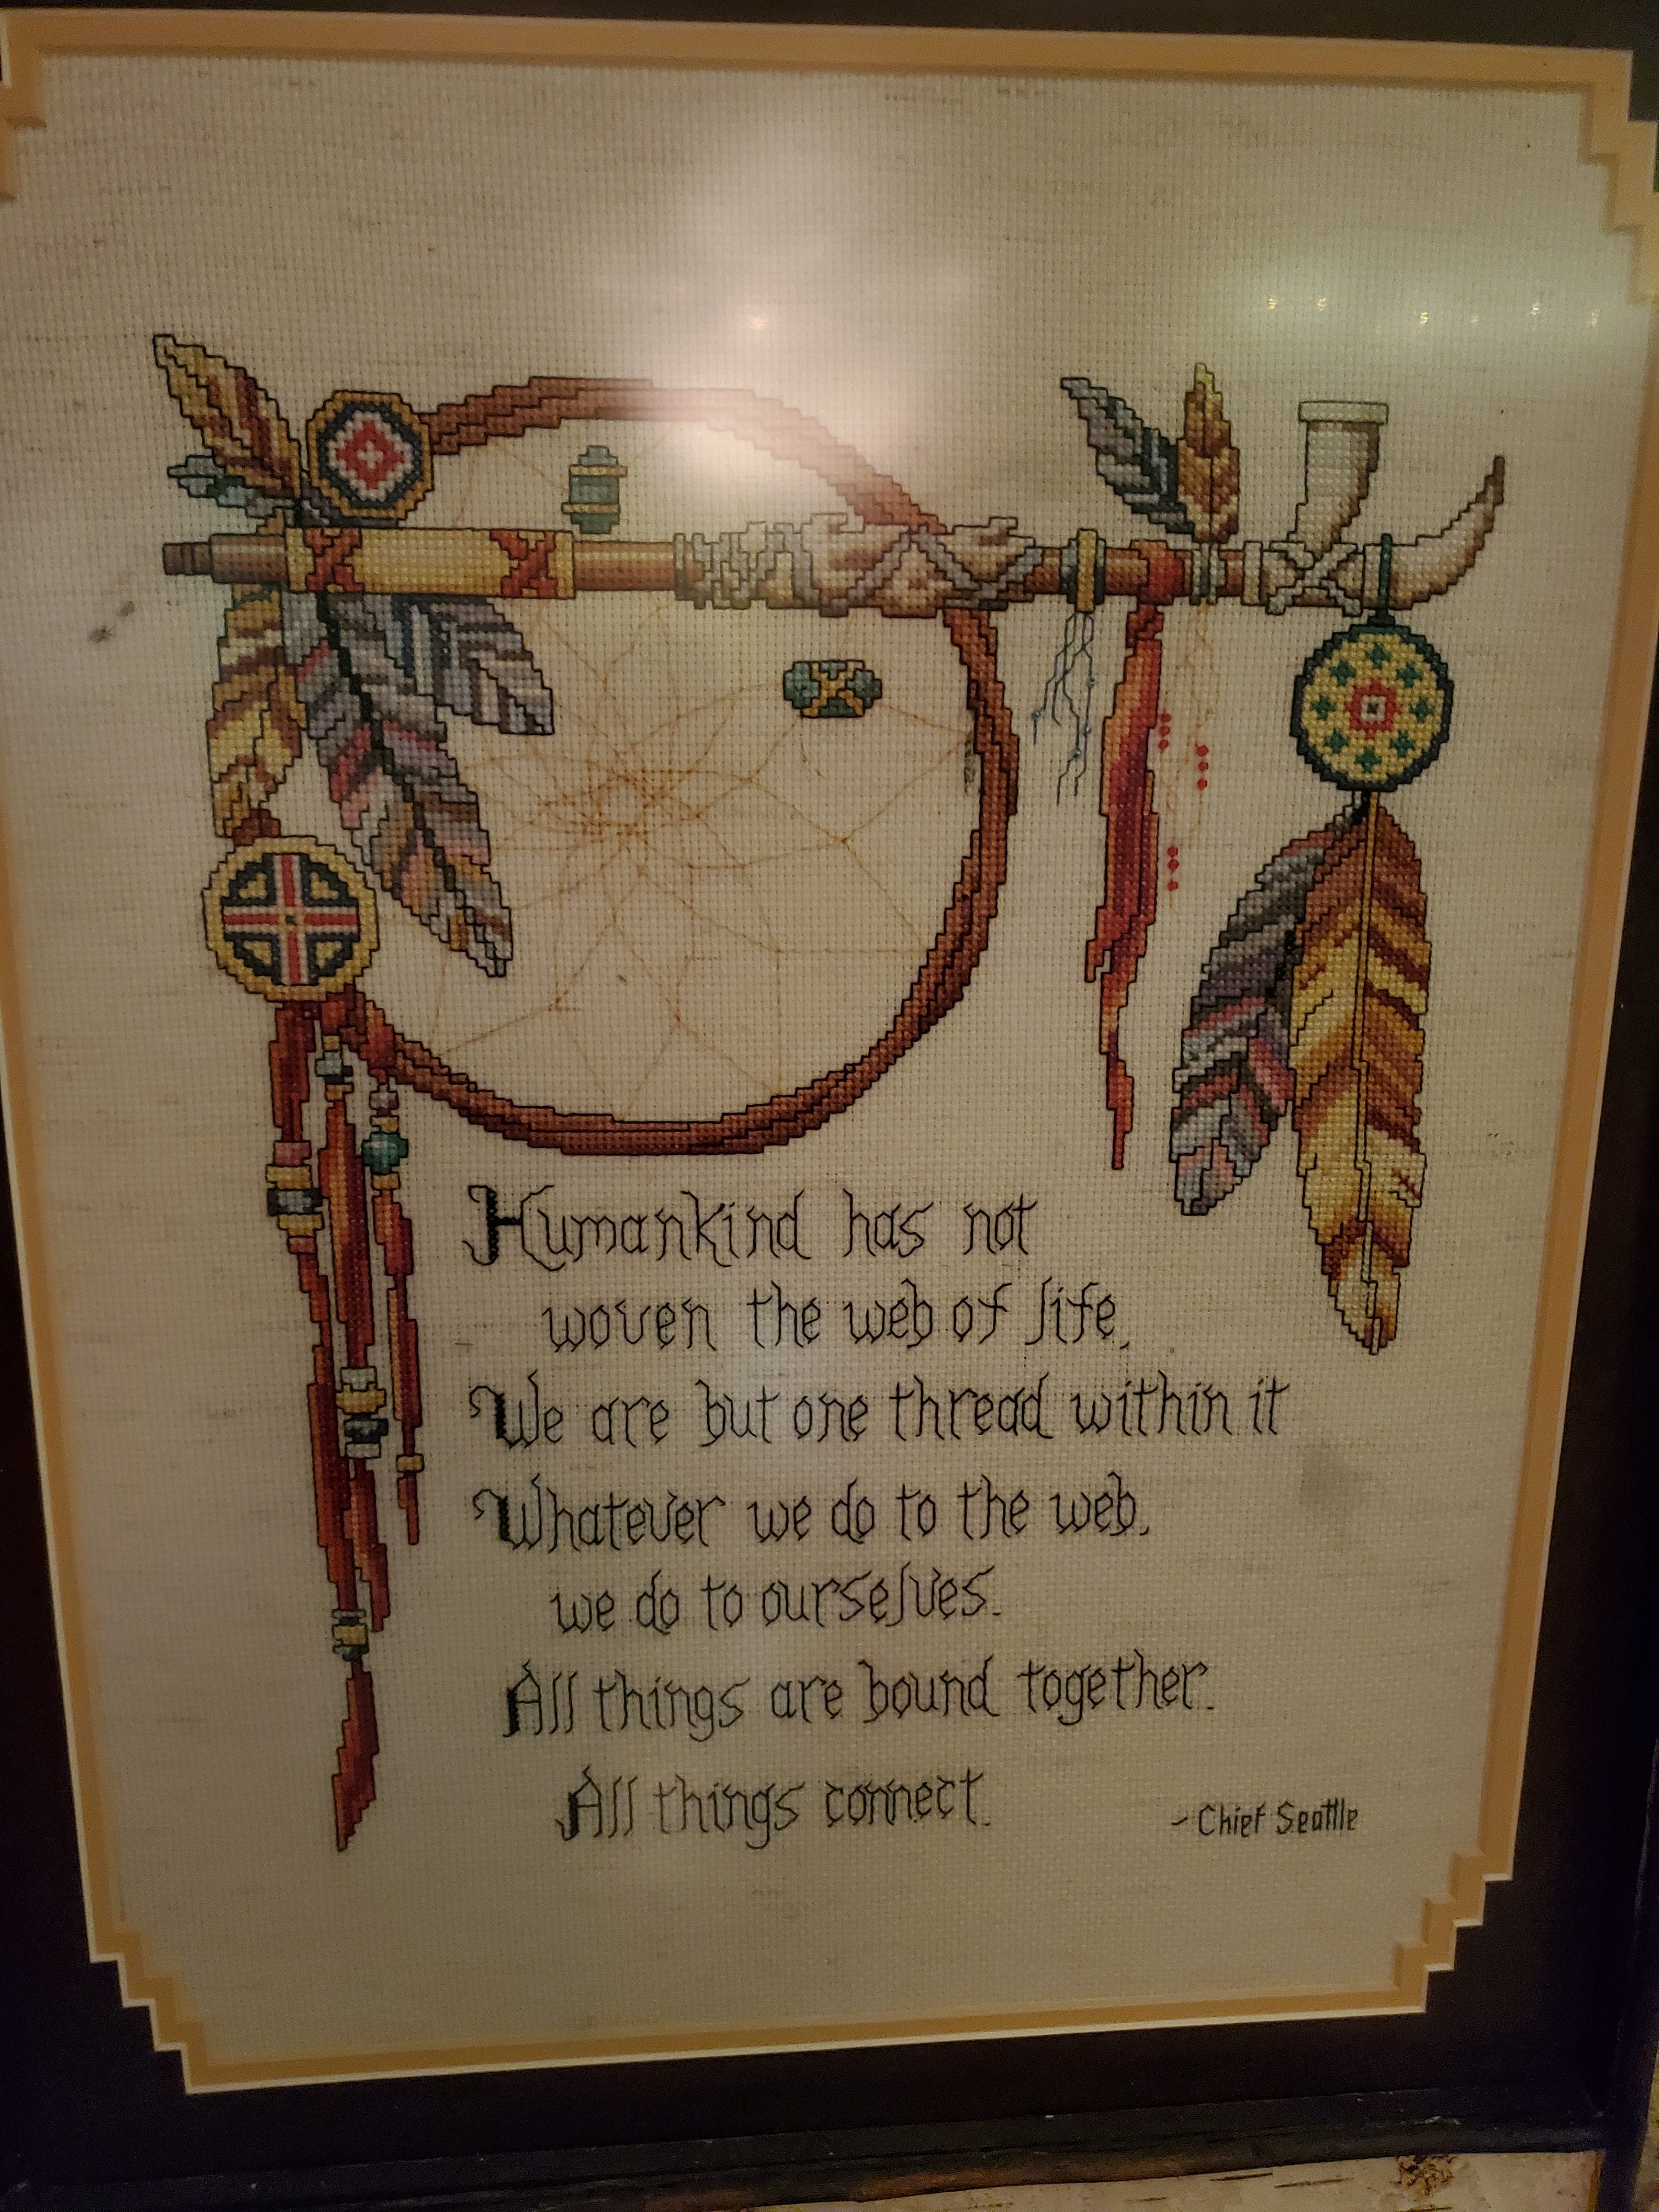 Humankind has not
woven the web of life,
We are but one thread within it
Whatever we do to the web,
we do to ourselves.
All things are bound together.
All things connect.
~Chief Seattle